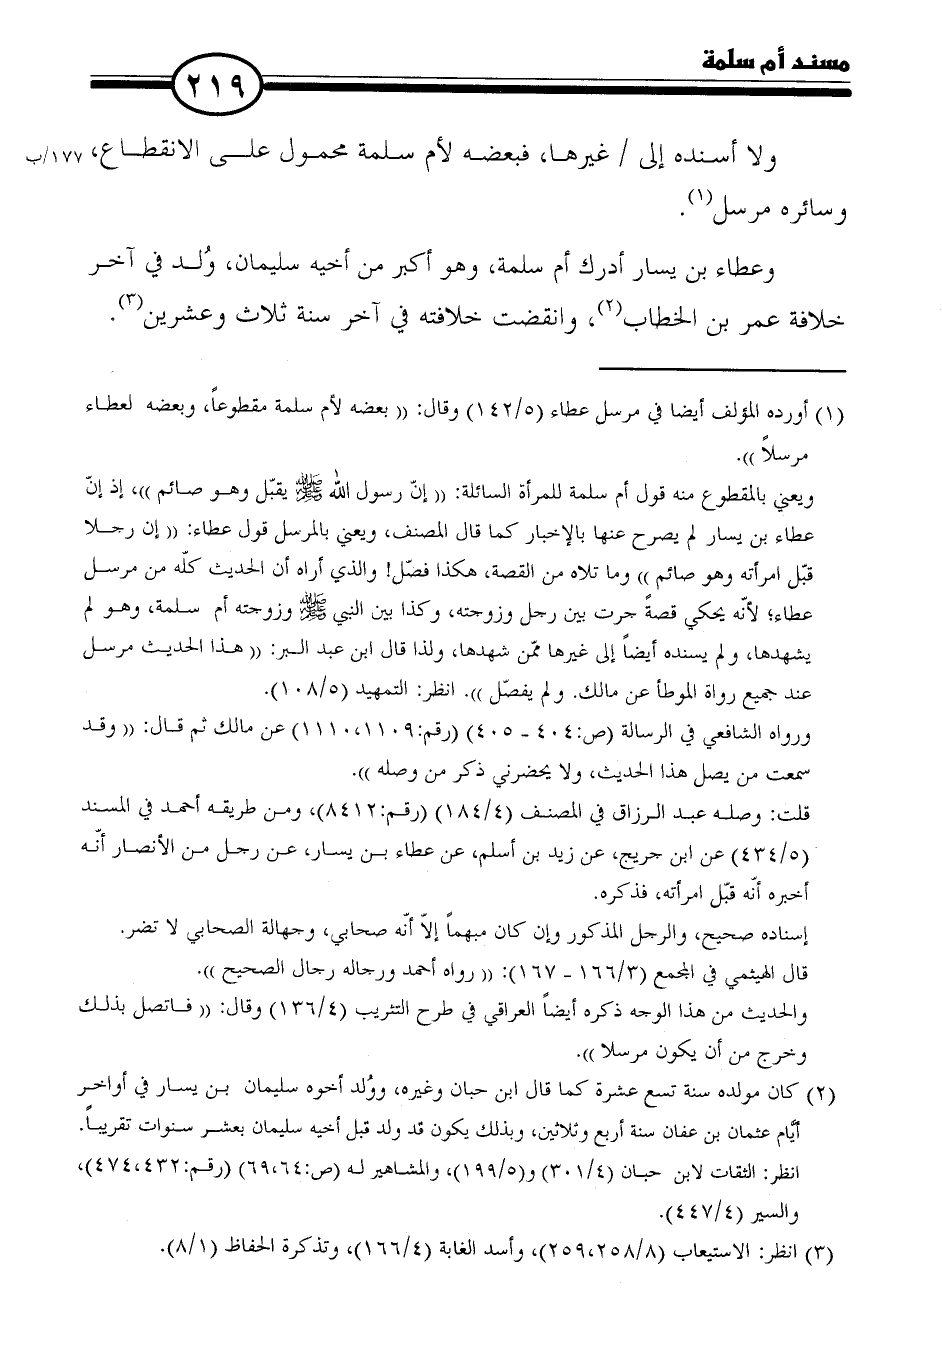 مسند أم سلمة
٢١٩
ولا أسنده إلى / غيرها، فبعضه لأم سلمة محمول على الانقطاع، ١٧٧/ب
وسائره مرسل(١).
وعطاء بن يسار أدرك أم سلمة، وهو أكبر من أخيه سليمان، وُلد في آخر
خلافة عمر بن الخطاب(٢)، وانقضت خلافته في آخر سنة ثلاث وعشرين(٣).
(١) أورده المؤلف أيضا في مرسل عطاء (١٤٢/٥) وقال: (( بعضه لأم سلمة مقطوعاً، وبعضه لعطاء
مرسلاً )).
ويعني بالمقطوع منه قول أم سلمة للمرأة السائلة: (( إنّ رسول الله ﷺ يقبّل وهو صائم ))، إذ إنّ
عطاء بن يسار لم يصرح عنها بالإخبار كما قال المصنف، ويعني بالمرسل قول عطاء: (( إن رجلا
قبّل امرأته وهو صائم )) وما تلاه من القصة، هكذا فصّل! والذي أراه أن الحديث كلّه من مرسل
عطاء؛ لأنّه يحكي قصةً جرت بين رجل وزوجته، وكذا بين النبي ﷺ وزوجته أم سلمة، وهو لم
يشهدها، ولم يسنده أيضاً إلى غيرها ممّن شهدها، ولذا قال ابن عبد البر: (( هذا الحديث مرسل
عند جميع رواة الموطأ عن مالك. ولم يفصّل )). انظر: التمهيد (١٠٨/٥).
ورواه الشافعي في الرسالة (ص:٤٠٤ - ٤٠٥) (رقم:١١٠٩،١١١٠) عن مالك ثم قال: (( وقد
سمعت من يصل هذا الحديث، ولا يحضرني ذكر من وصله )).
قلت: وصله عبد الرزاق في المصنف (١٨٤/٤) (رقم:٨٤١٢)، ومن طريقه أحمد في المسند
(٤٣٤/٥) عن ابن جريج، عن زيد بن أسلم، عن عطاء بن يسار، عن رجل من الأنصار أنّه
أخبره أنّه قبّل امرأته، فذكره.
إسناده صحيح، والرجل المذكور وإن كان مبهماً إلاّ أنّه صحابي، وجهالة الصحابي لا تضر.
قال الهيثمي في المجمع (١٦٦/٣ - ١٦٧): (( رواه أحمد ورجاله رجال الصحيح )).
والحديث من هذا الوجه ذكره أيضاً العراقي في طرح التثريب (١٣٦/٤) وقال: (( فاتصل بذلك
وخرج من أن يكون مرسلا )).
(٢) كان مولده سنة تسع عشرة كما قال ابن حبان وغيره، ووُلد أخوه سليمان بن يسار في أواخر
أيّام عثمان بن عفان سنة أربع وثلاثين، وبذلك يكون قد ولد قبل أخيه سليمان بعشر سنوات تقريباً.
انظر: الثقات لابن حبان (٣٠١/٤) و(١٩٩/٥)، والمشاهير له (ص:٦٩،٦٤) (رقم:٤٧٤،٤٣٢)،
والسير (٤٤٧/٤).
(٣) انظر: الاستيعاب (٢٥٩،٢٥٨/٨)، وأسد الغابة (١٦٦/٤)، وتذكرة الحفاظ (٨/١).